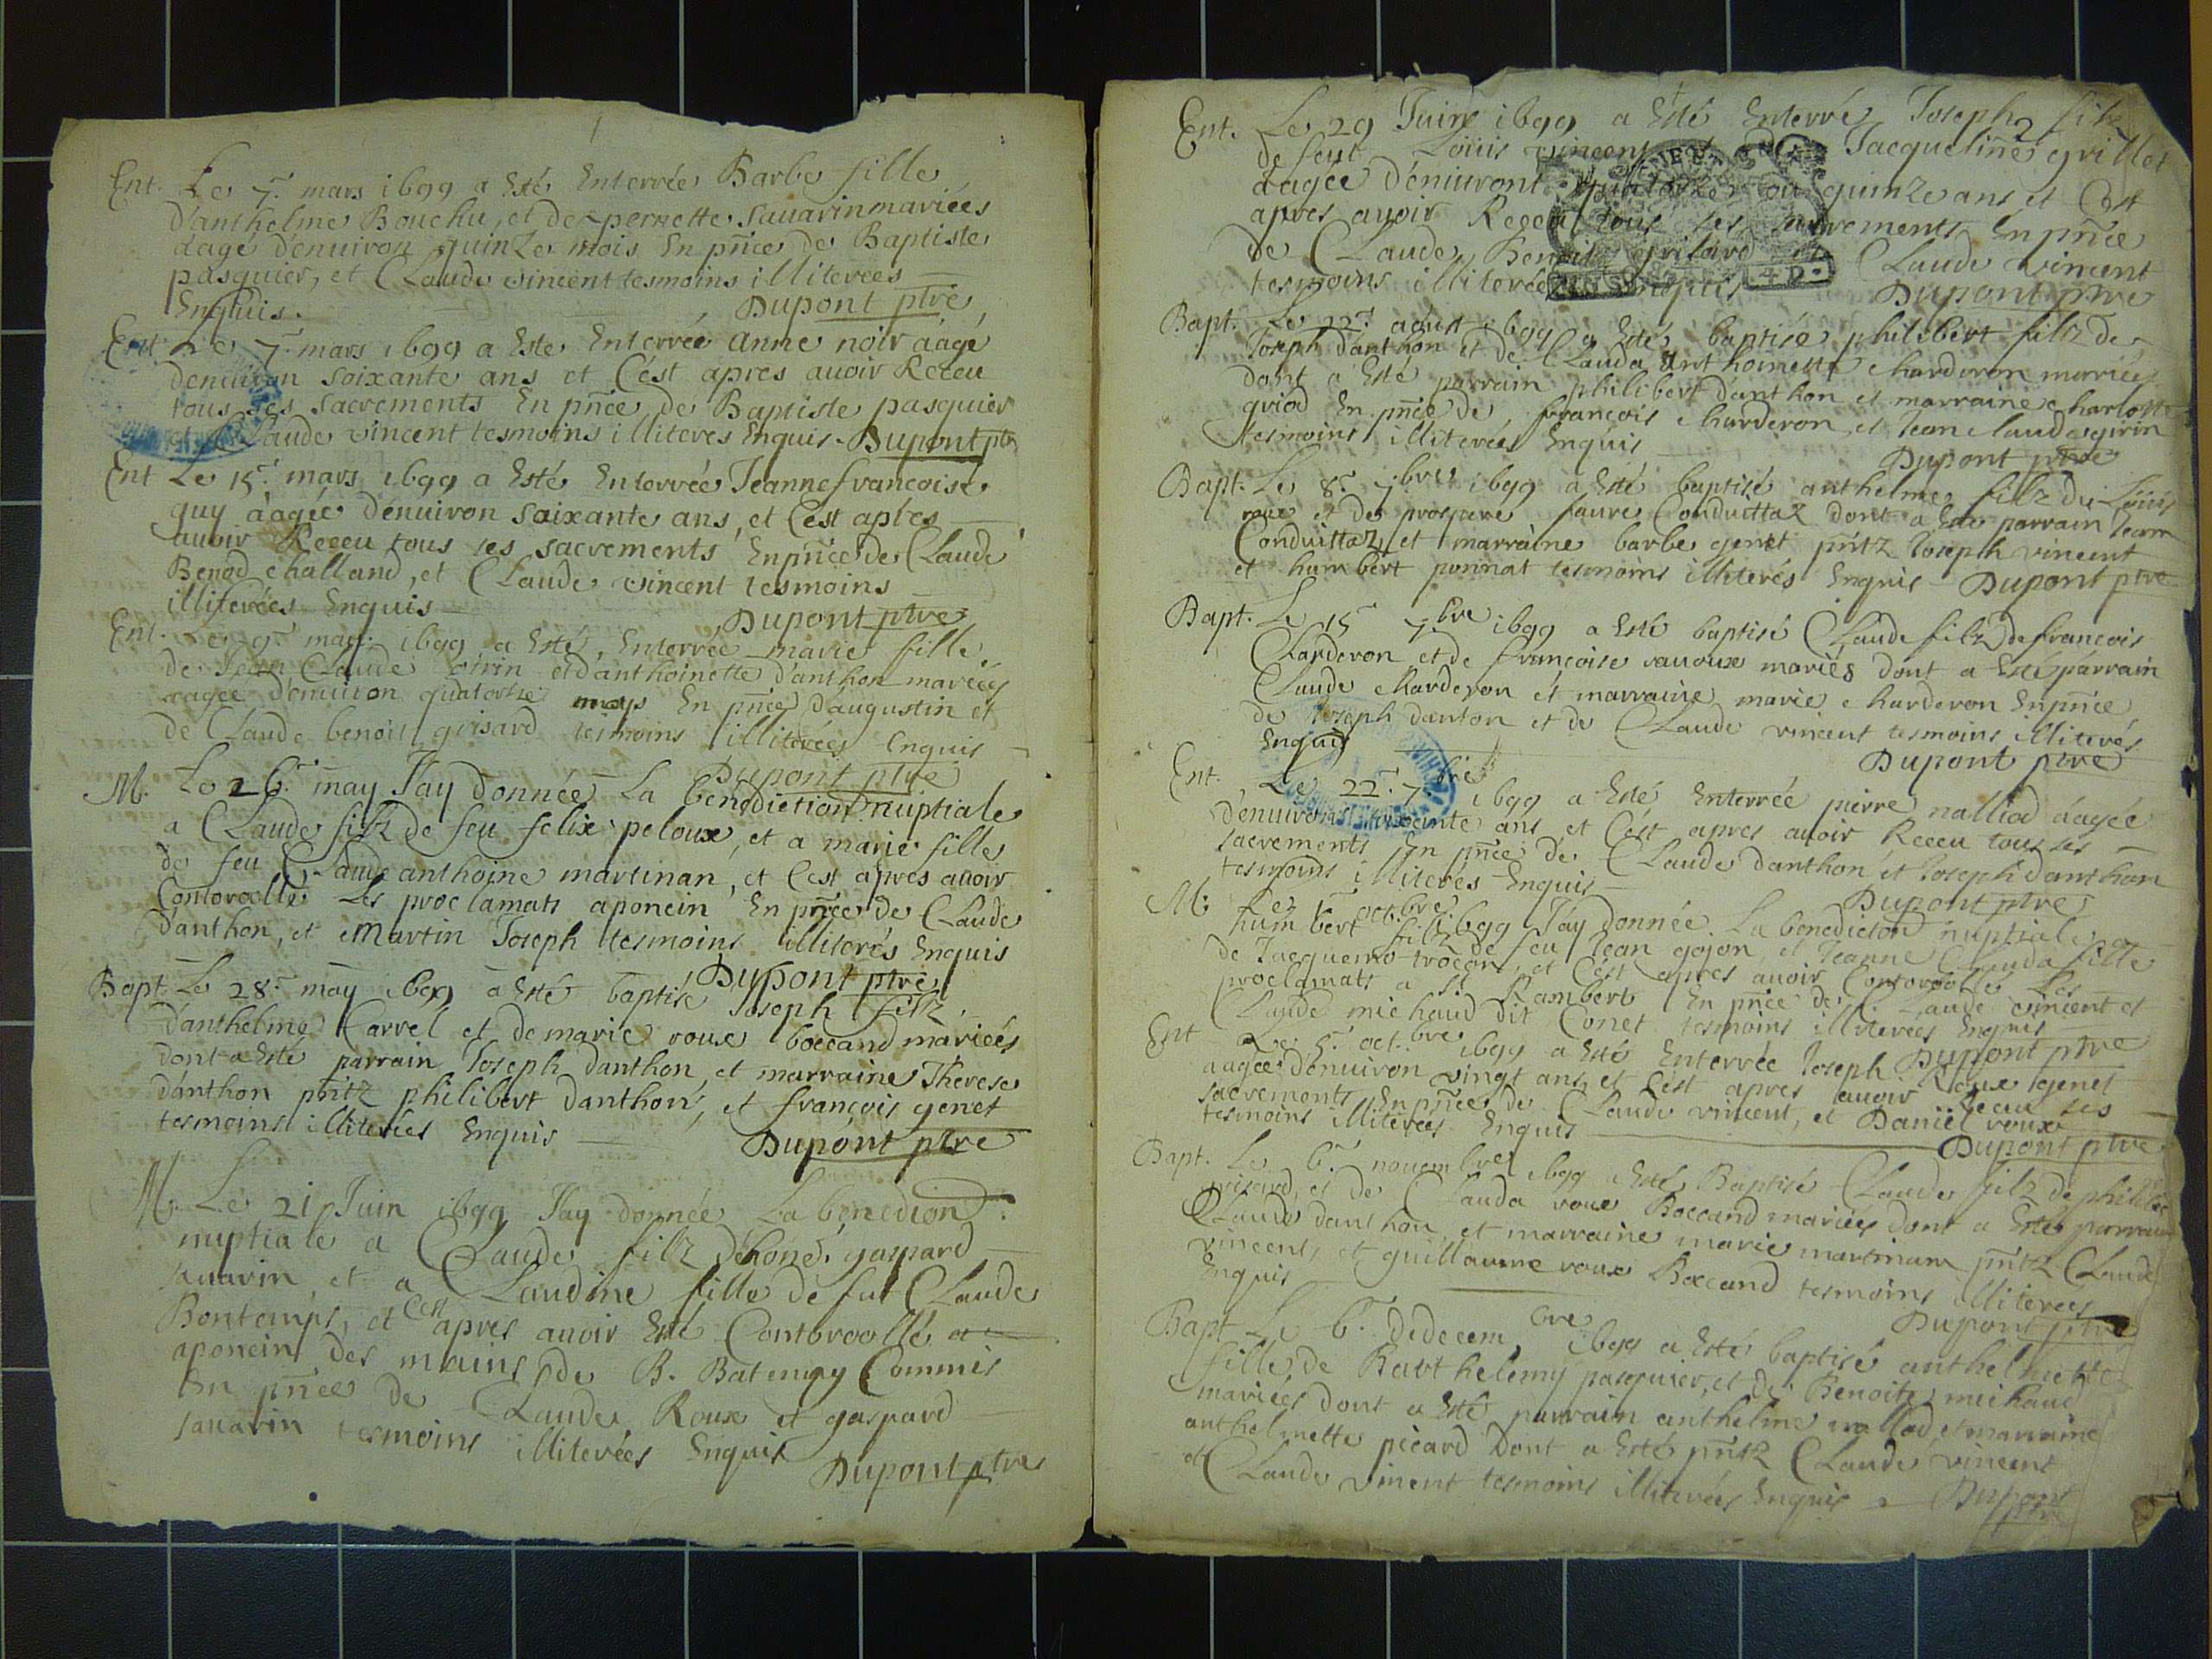 1
Ent. Le 7.e mars 1699 a Esté Enterrée Barbe fille
d'anthelme Bouchu, et de pernette sauarin mariées
aagé d'enuiron quinze mois En pn̄ce de Baptiste
pasquier, et Claude vincent tesmoins illiterées
Enquis. Dupont ptre
Ent Le 7.e mars 1699 a Este Enterrée anne noir aagé
d'enuiron soixante ans et C'est apres auoir Receu
tous ses sacrements En pn̄ce de Baptiste pasquier
et Claude vincent tesmoins illiteres Enquis. Dupont ptre
Ent Le 15.e mars 1699 a Esté Enterrée Jeanne francoise
guy aagée d'enuiron soixante ans, et C'est apres
auoir Receu tous ses sacrements En pn̄ce de Claude
Benod challand, et Claude vincent tesmoins
illiterées Enquis Dupont ptre
Ent. Le 9.e may 1699 a Esté Enterrée marie fille
de Jean Claude et d'anthoinette d'anthon mariées
aagée d'enuiron quatorze moys En pn̄ce d'augustin et
de Claude benoit grisard tesmoins illiterées Enquis
Dupont ptre
M. Le 26.e may J'ay donnée La benediction nuptiale
a Claude filz de feu felix peloux, et a marie fille
de feu Claude anthoine martinan, et C'est apres auoir
Controollé Les proclamats aponcin En pn̄ce de Claude
d'anthon, et Martin Joseph tesmoins illiterés Enquis
Dupont ptre
Bapt. Le 28.e may 1699 a Esté baptisé Joseph filz
d'anthelme Carrel et de marie roux boccand mariées
dont a Esté parrain Joseph danthon, et marraine Therese
danthon pn̄tz philibert danthon, et françois genet
tesmoins illiterées Enquis Dupont ptre
M. Le 21 Juin 1699 J'ay donnée La benedion
nuptiale a Claude filz d'honē. gaspard
sauarin et a Claudine fille de fut Claude
Bontemps, et C'est apres auoir Esté Controollé
aponcin des mains de B. Batenay Commis
En pn̄ce de Claude Roux et gaspard
sauarin tesmoins illiterées Enquis
Dupont ptre
2
Ent. Le 29 Juin 1699 a Esté Enterré Joseph filz
de feut Louis vincent et Jacqueline grillet
aagée d'enuiront quatorze ou quinze ans et C'est
apres auoir Receu tous ses sacrements En pn̄ce
de Claude Benoit grisard et Claude vincent
tesmoins illiterées Enquis Dupont ptre
Bapt. Le 22.e aoust 1699 a Esté baptisé philibert filz de
Joseph d'anthon et de Clauda anthoinette charderon mariées
dont a Esté parrain philibert d'anthon et marraine charlotte
griod En pn̄ce de françois charderon, et Jean Claude girin
tesmoins illiterées Enquis
Dupont ptre
Bapt. Le 8.e 7bres 1699 a Esté baptisé anthelme filz du Louis
roux et de prospere faure Conduittaz dont a Este parrain Jean
Conduittaz et marraine barbe genet pn̄tz Joseph vincent
et humbert ponnat tesmoins illiterés Enquis Dupont ptre
Bapt. Le 15 7bre 1699 a Esté baptisé Claude filz de francois
Charderon et de françoise rauoux mariés dont a Esté parrain
Claude charderon et marraine marie charderon En pn̄ce
de Joseph danton et de Claude vincent tesmoins illiterés
Enquis Dupont ptre
Ent. Le 22.e 7.bre 1699 a Esté Enterrée pierre nalliod aagée
d'enuiron ans et C'est apres auoir Receu tous ses
sacrements En pn̄ce de Claude danthon et Joseph danthon
tesmoins illiterés Enquis Dupont ptre
M. Le 1.e octbre 1699 J'ay donnée La benedicton nuptiale a
humbert filz de feu Jean gojon, et Jeanne Clauda fille
de Jacquemo trocon, et C'est apres auoir Controollé Les
proclamats a St. Rambert En pn̄ce de Claude vincent et
Claude michaud dit Conet tesmoins illiterées Enquis
Dupont ptre
Ent Le 5.e oct.bre 1699 a Esté Enterrée Joseph Roux genet
aagée d'enuiron vingt ans et C'est apres auoir Receu ses
sacrements En pn̄ce de Claude vincent, et Daniel roux
tesmoins illiterées Enquis Dupont ptre
Bapt. Le 6.e nouembre 1699 a Esté Baptisé Claude filz de philibert
grisard, et de Clauda roux Boccand mariées dont a Esté parrain
Claude danthon et marraine marie martinam pn̄tz Claude
vincent, et guillaume roux Boccand tesmoins illiterées
Enquis Dupont ptre
Bapt Le 6.e de decembre 1699 a Esté baptisé anthelmette
fille de Barthelemy pasquier, et de Benoite michaud
mariées dont a Esté parrain anthelme nalliod, et marraine
anthelmette picard Dont a Esté pn̄tz Claude vincent
et Claude vincent tesmoins illiterées Enquis Dupont
ptre